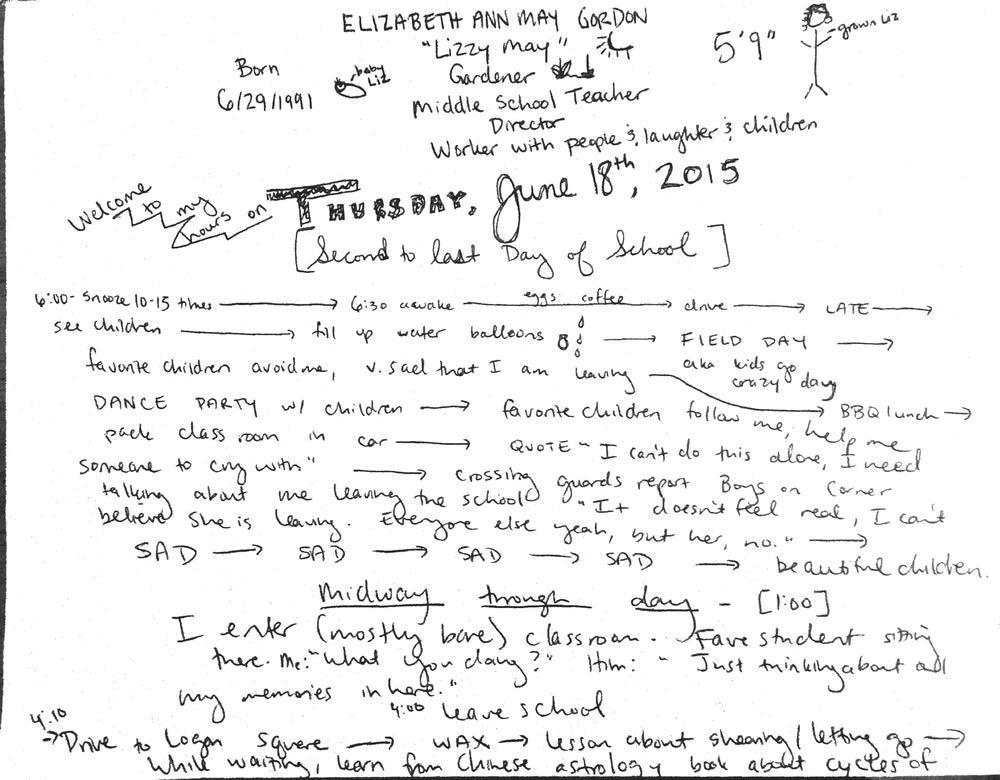 ELIZABETH ANN MAY GORDON
"Lizzy May"
Born
6/29/1991
baby
Liz
Gardener
Middle School Teacher
Director
Worker with people & laughter & children
5'9"
grown Liz
Welcome to my hours on
THURSDAY, June 18th, 2015
[Second to last Day of School]
6:00- Snooze 10-15 times → 6:30 awake eggs coffee → drive → LATE →
see children → fill up water balloons → FIELD DAY →
aka kids go
crazy day
favorite children avoid me, v. sad that I am leaving → BBQ lunch →
DANCE PARTY w/ children → favorite children follow me, help me
pack classroom in car → QUOTE "I can't do this alone, I need
someone to cry with" → crossing guards report Boys on Corner
talking about me leaving the school "It doesn't feel real, I can't
believe she is leaving. Everyone else yeah, but her, no." →
SAD → SAD → SAD → SAD → beautiful children.
Midway through day - [1:00]
I enter (mostly bare) classroom. Fave student sitting
there. Me: "What you doing?" Him: "Just thinking about all
my memories in here."
4:00 leave school
4:10
→ Drive to Logan Square → WAX → lesson about shearing/letting go →
While waiting, learn from Chinese astrology book about cycles of